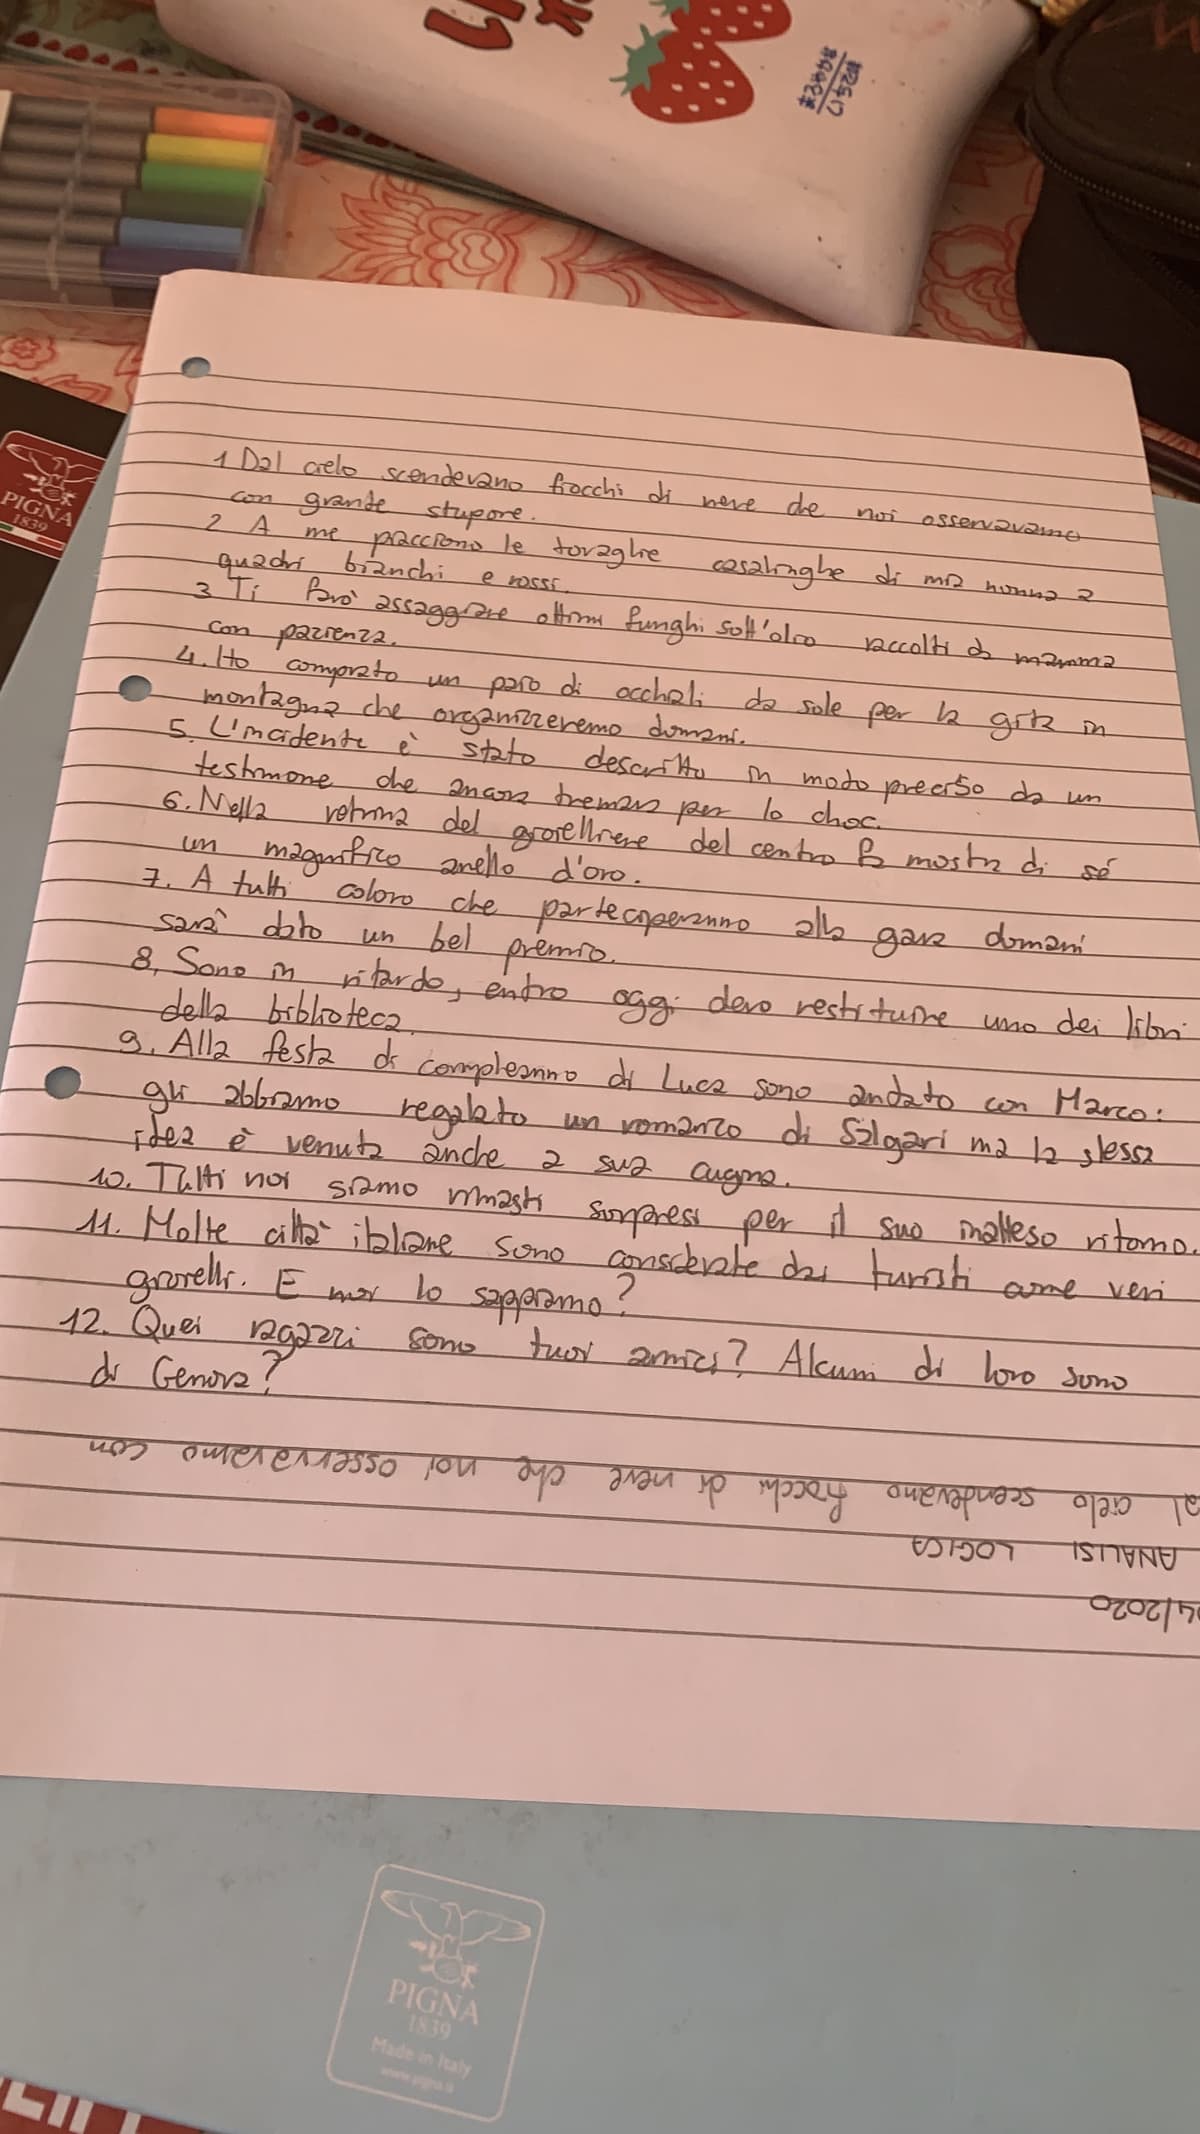 PIGNA
1839
1 Dal cielo scendevano fiocchi di neve che noi osservavamo
con grande stupore.
2 A me piacciono le tovaglie casalinghe di mia nonna a
quadri bianchi e rossi.
3 Ti farò assaggiare ottimi funghi sott'olio raccolti da mamma
con pazienza.
4. Ho comprato un paio di occhiali da sole per la gita in
montagna che organizzeremo domani.
5. L'incidente è stato descritto in modo preciso da un
testimone che ancora tremava per lo choc.
6. Nella vetrina del gioielliere del centro fa mostra di sé
un magnifico anello d'oro.
7. A tutti coloro che parteciperanno alla gara domani
sarà dato un bel premio.
8. Sono in ritardo, entro oggi devo restituire uno dei libri
della biblioteca.
9. Alla festa di compleanno di Luca sono andato con Marco:
gli abbiamo regalato un romanzo di Salgari ma la stessa
idea è venuta anche a sua cugina.
10. Tutti noi siamo rimasti sorpresi per il suo inatteso ritorno.
11. Molte città italiane sono considerate dai turisti come veri
gioielli. E noi lo sappiamo?
12. Quei ragazzi sono tuoi amici? Alcuni di loro sono
di Genova?
4/2020
ANALISI LOGICA
al cielo scendevano fiocchi di neve che noi osservavamo con
PIGNA
1839
Made in Italy